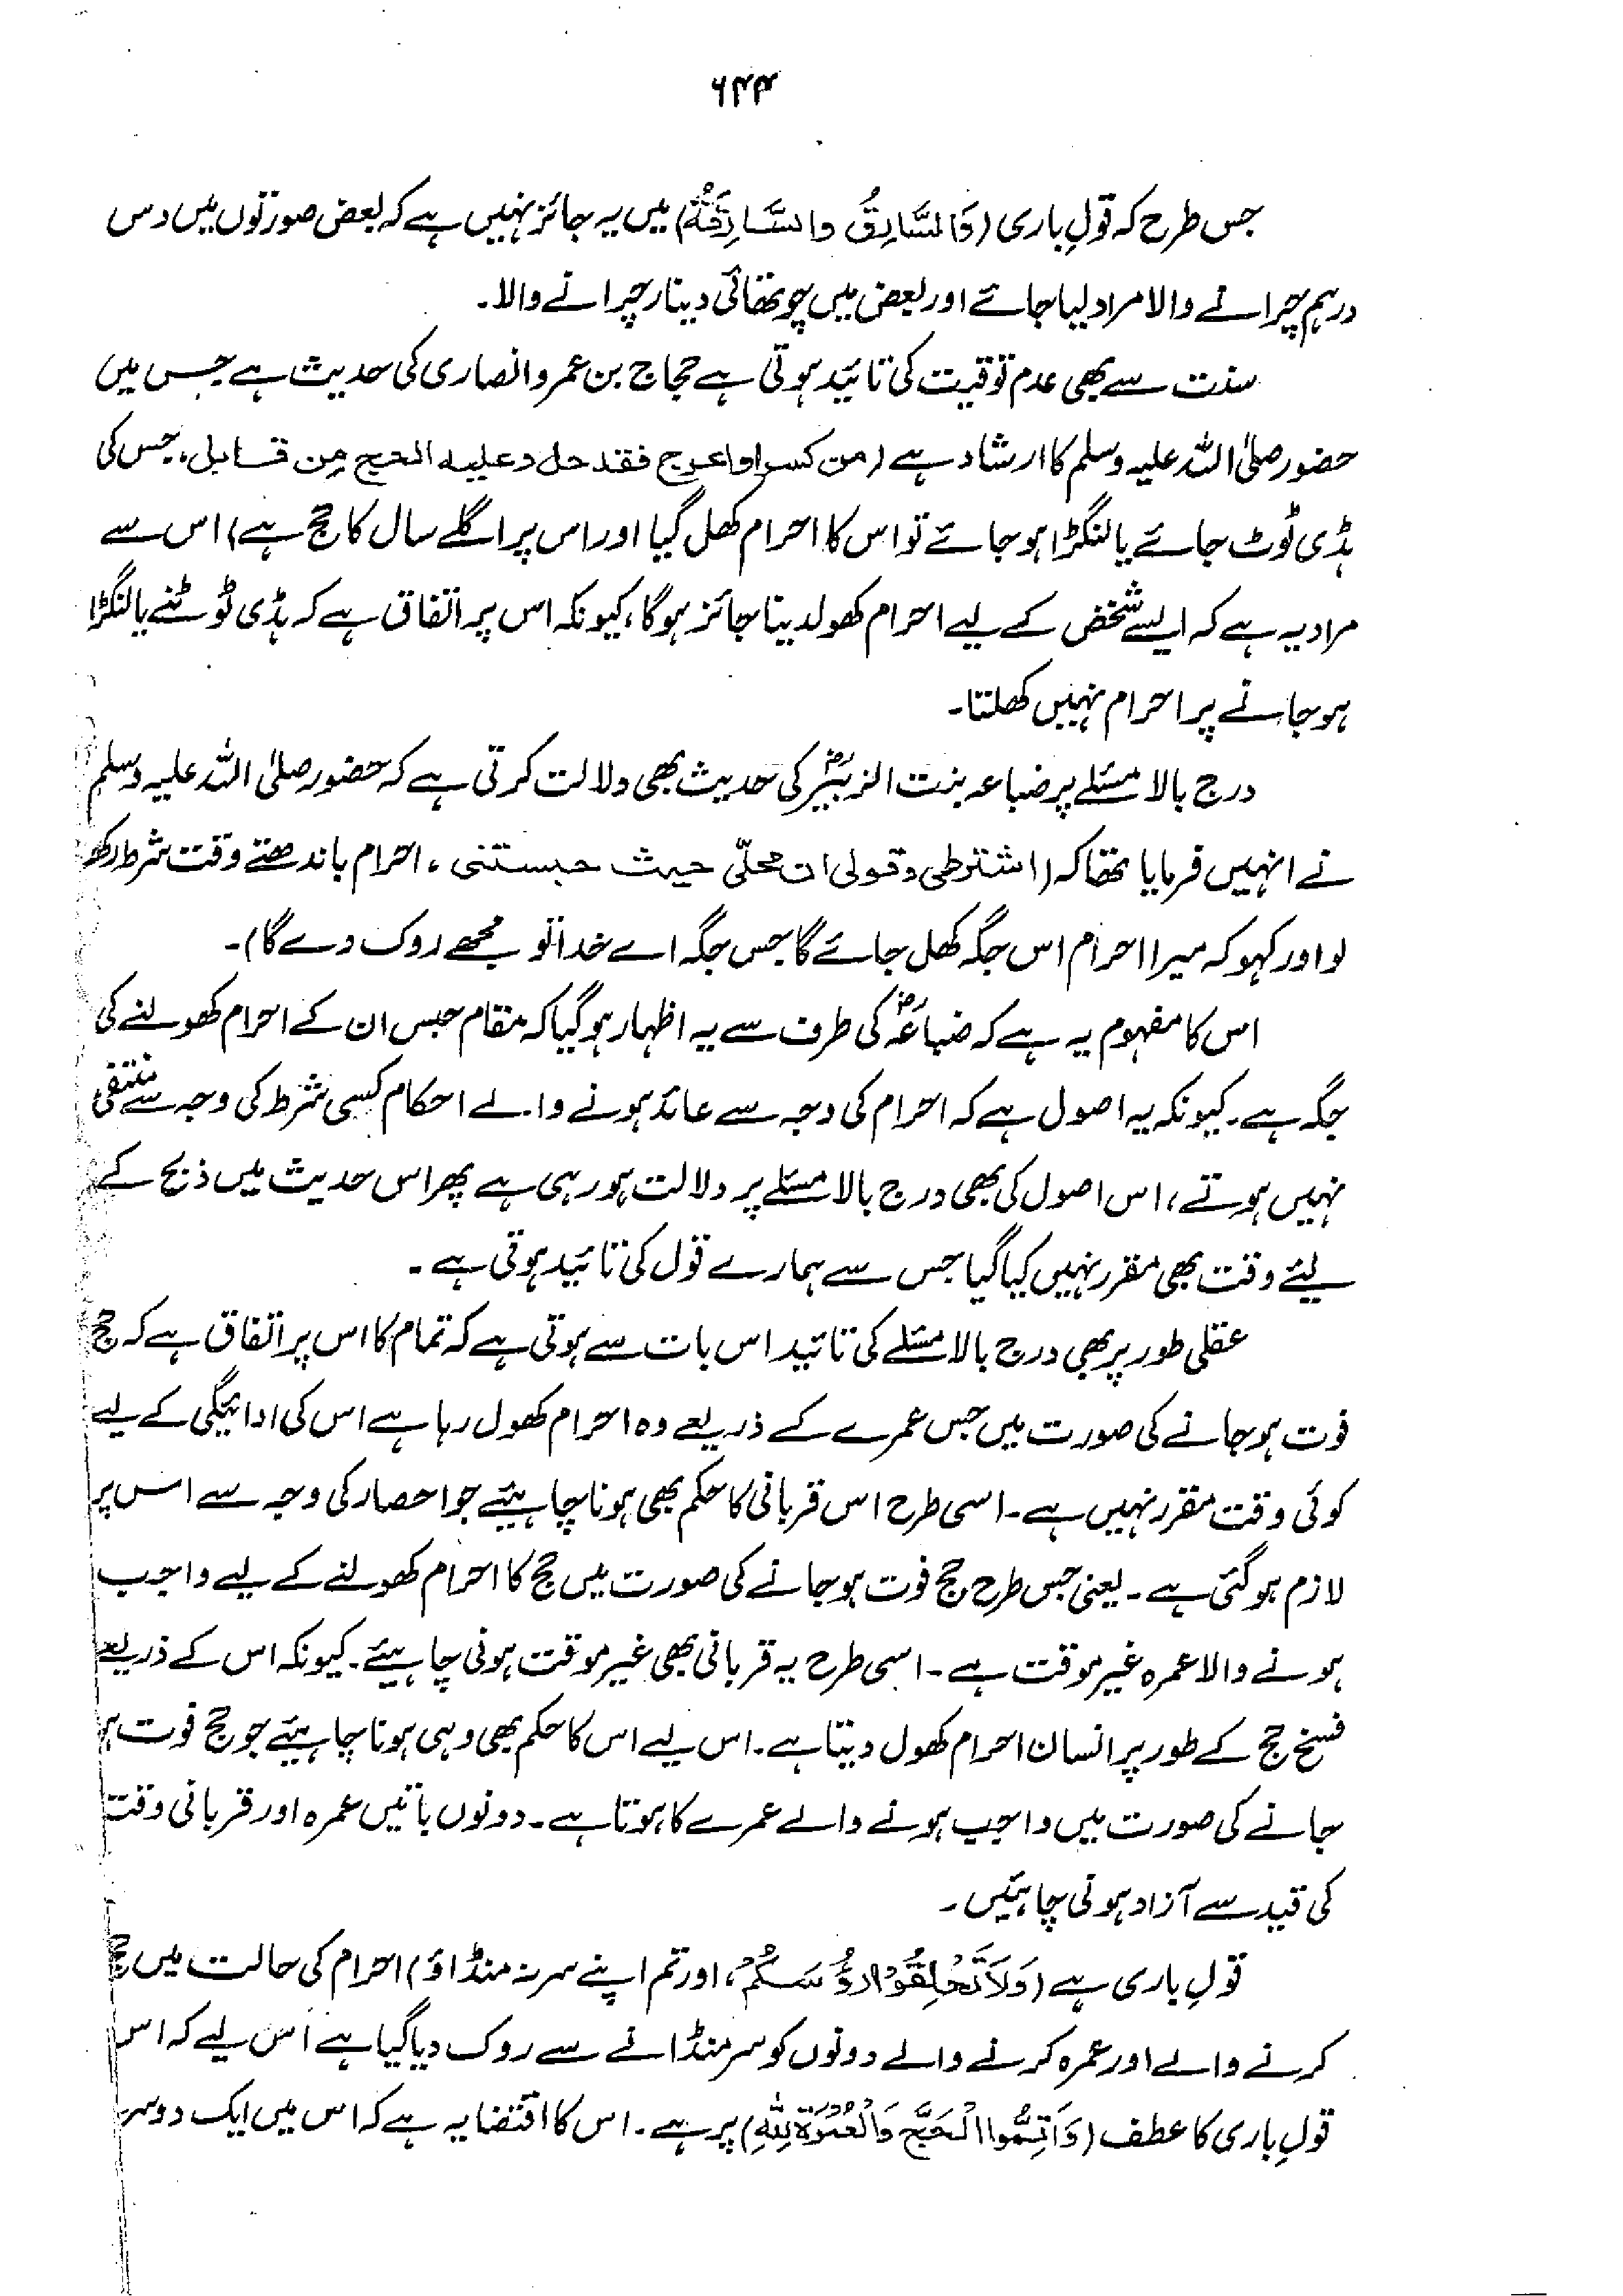 ۶۴۴
جس طرح کہ قولِ باری (وَالسَّارِقُ والسَّارِقَةُ) میں یہ جائز نہیں ہے کہ بعض صورتوں میں دس
درہم چرانے والا مراد لیا جائے اور بعض میں چوتھائی دینار چرانے والا۔
سنت سے بھی عدم توقیت کی تائید ہوتی ہے حجاج بن عمرو انصاری کی حدیث ہے جس میں
حضور صلی اللہ علیہ وسلم کا ارشاد ہے (من کسر او اعرج فقد حل وعلیہ الحج من قابل، جس کی
ہڈی ٹوٹ جائے یا لنگڑا ہو جائے تو اس کا احرام کھل گیا اور اس پر اگلے سال کا حج ہے) اس سے
مراد یہ ہے کہ ایسے شخص کے لیے احرام کھول دینا جائز ہوگا، کیونکہ اس پر اتفاق ہے کہ ہڈی ٹوٹنے یا لنگڑا
ہو جانے پر احرام نہیں کھلتا۔
درج بالا مسئلے پر ضباعہ بنت الزبیرؓ کی حدیث بھی دلالت کرتی ہے کہ حضور صلی اللہ علیہ وسلم
نے انہیں فرمایا تھا کہ (اشترطی وقولی ان محلّی حیث حبستنی، احرام باندھتے وقت شرط رکھ
لو اور کہو کہ میرا احرام اس جگہ کھل جائے گا جس جگہ اے خدا تو مجھے روک دے گا)۔
اس کا مفہوم یہ ہے کہ ضباعہؓ کی طرف سے یہ اظہار ہو گیا کہ مقام حبس ان کے احرام کھولنے کی
جگہ ہے۔ کیونکہ یہ اصول ہے کہ احرام کی وجہ سے عائد ہونے والے احکام کسی شرط کی وجہ سے منتفی
نہیں ہوتے، اس اصول کی بھی درج بالا مسئلے پر دلالت ہو رہی ہے پھر اس حدیث میں ذبح کے
لیئے وقت بھی مقرر نہیں کیا گیا جس سے ہمارے قول کی تائید ہوتی ہے۔
عقلی طور پر بھی درج بالا مسئلے کی تائید اس بات سے ہوتی ہے کہ تمام کا اس پر اتفاق ہے کہ حج
فوت ہو جانے کی صورت میں جس عمرے کے ذریعے وہ احرام کھول رہا ہے اس کی ادائیگی کے لیے
کوئی وقت مقرر نہیں ہے۔ اسی طرح اس قربانی کا حکم بھی ہونا چاہیئے جو احصار کی وجہ سے اس پر
لازم ہو گئی ہے۔ یعنی جس طرح حج فوت ہو جانے کی صورت میں حج کا احرام کھولنے کے لیے واجب
ہونے والا عمرہ غیر موقت ہے۔ اسی طرح یہ قربانی بھی غیر موقت ہونی چاہیئے۔ کیونکہ اس کے ذریعے
فسخ حج کے طور پر انسان احرام کھول دیتا ہے۔ اس لیے اس کا حکم بھی وہی ہونا چاہیئے جو حج فوت ہو
جانے کی صورت میں واجب ہونے والے عمرے کا ہوتا ہے۔ دونوں باتیں عمرہ اور قربانی وقت
کی قید سے آزاد ہونی چاہئیں۔
قولِ باری ہے (وَلَا تَحْلِقُوْا رُءُوْسَكُمْ، اور تم اپنے سر نہ منڈاؤ) احرام کی حالت میں حج
کرنے والے اور عمرہ کرنے والے دونوں کو سر منڈانے سے روک دیا گیا ہے اس لیے کہ اس
قولِ باری کا عطف (وَاَتِمُّوا الْحَجَّ وَالْعُمْرَةَ لِلّٰهِ) پر ہے۔ اس کا اقتضا یہ ہے کہ اس میں ایک دوسر